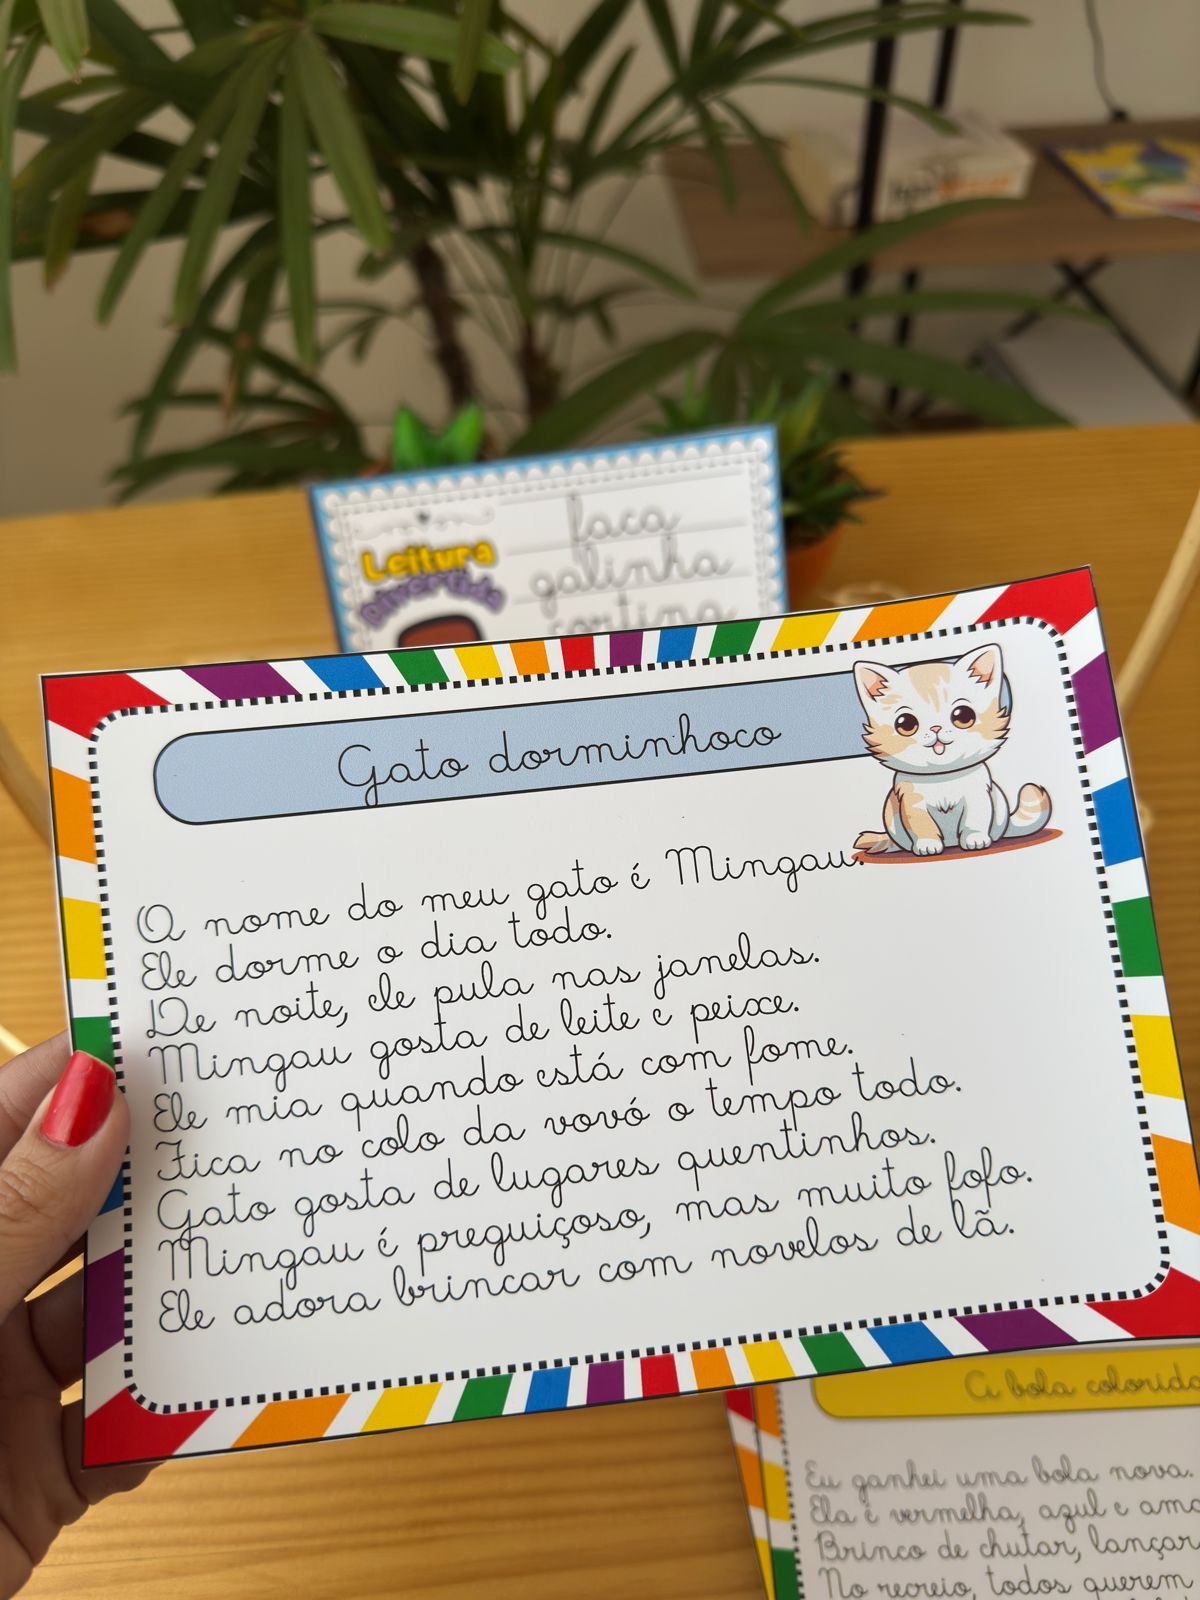 Leitura
Divertida
faca
galinha
cortina
Gato dorminhoco
O nome do meu gato é Mingau.
Ele dorme o dia todo.
De noite, ele pula nas janelas.
Mingau gosta de leite e peixe.
Ele mia quando está com fome.
Fica no colo da vovó o tempo todo.
Gato gosta de lugares quentinhos.
Mingau é preguiçoso, mas muito fofo.
Ele adora brincar com novelos de lã.
A bola colorida
Eu ganhei uma bola nova.
Ela é vermelha, azul e
Brinco de chutar, lançar
No recreio, todos querem